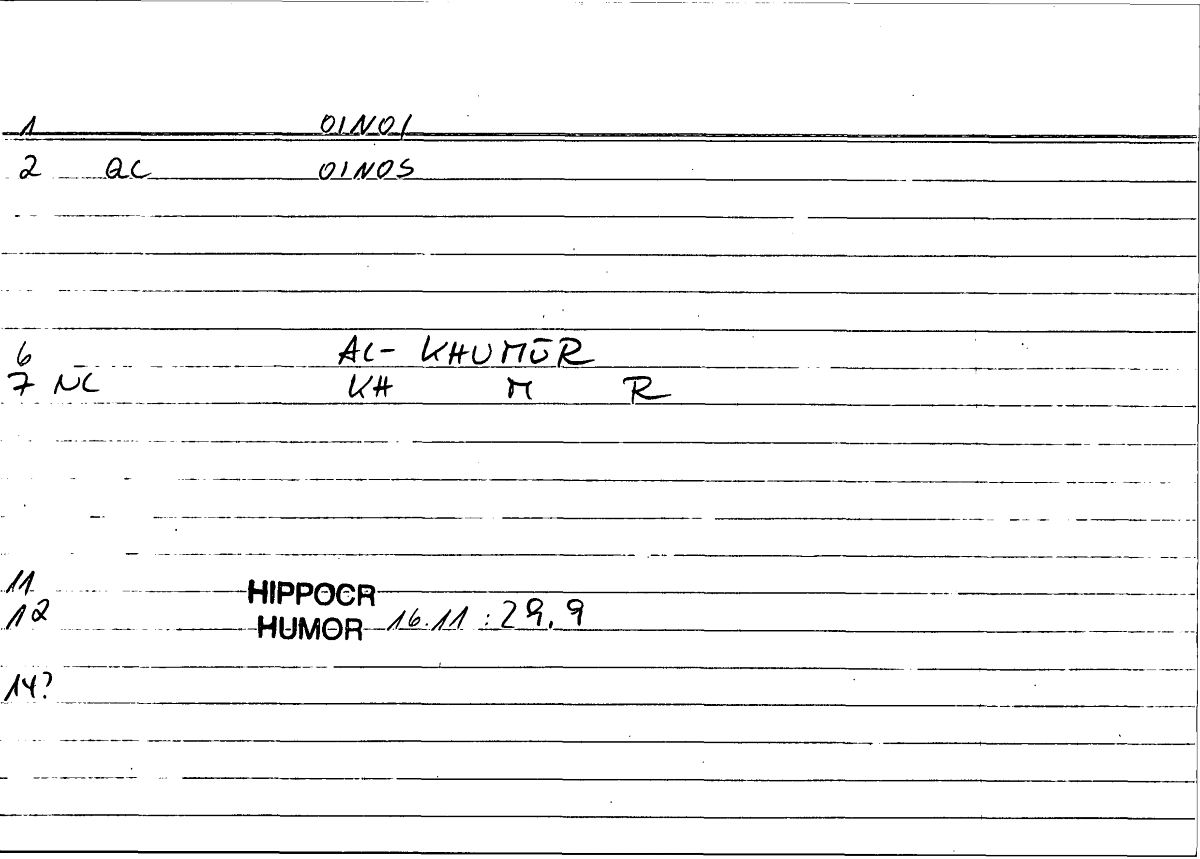 1 OINOI
2 QC OINOS
6 AL- KHUMŪR
7 NC KH M R
11 HIPPOCR
12 HUMOR 16.11 : 29.9
14?